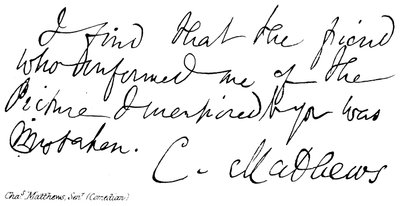 I find that the friend
who informed me of the
Picture I mentioned to you was
mistaken.
C. Mathews
Chaˢ Matthews, Senʳ (Comedian)